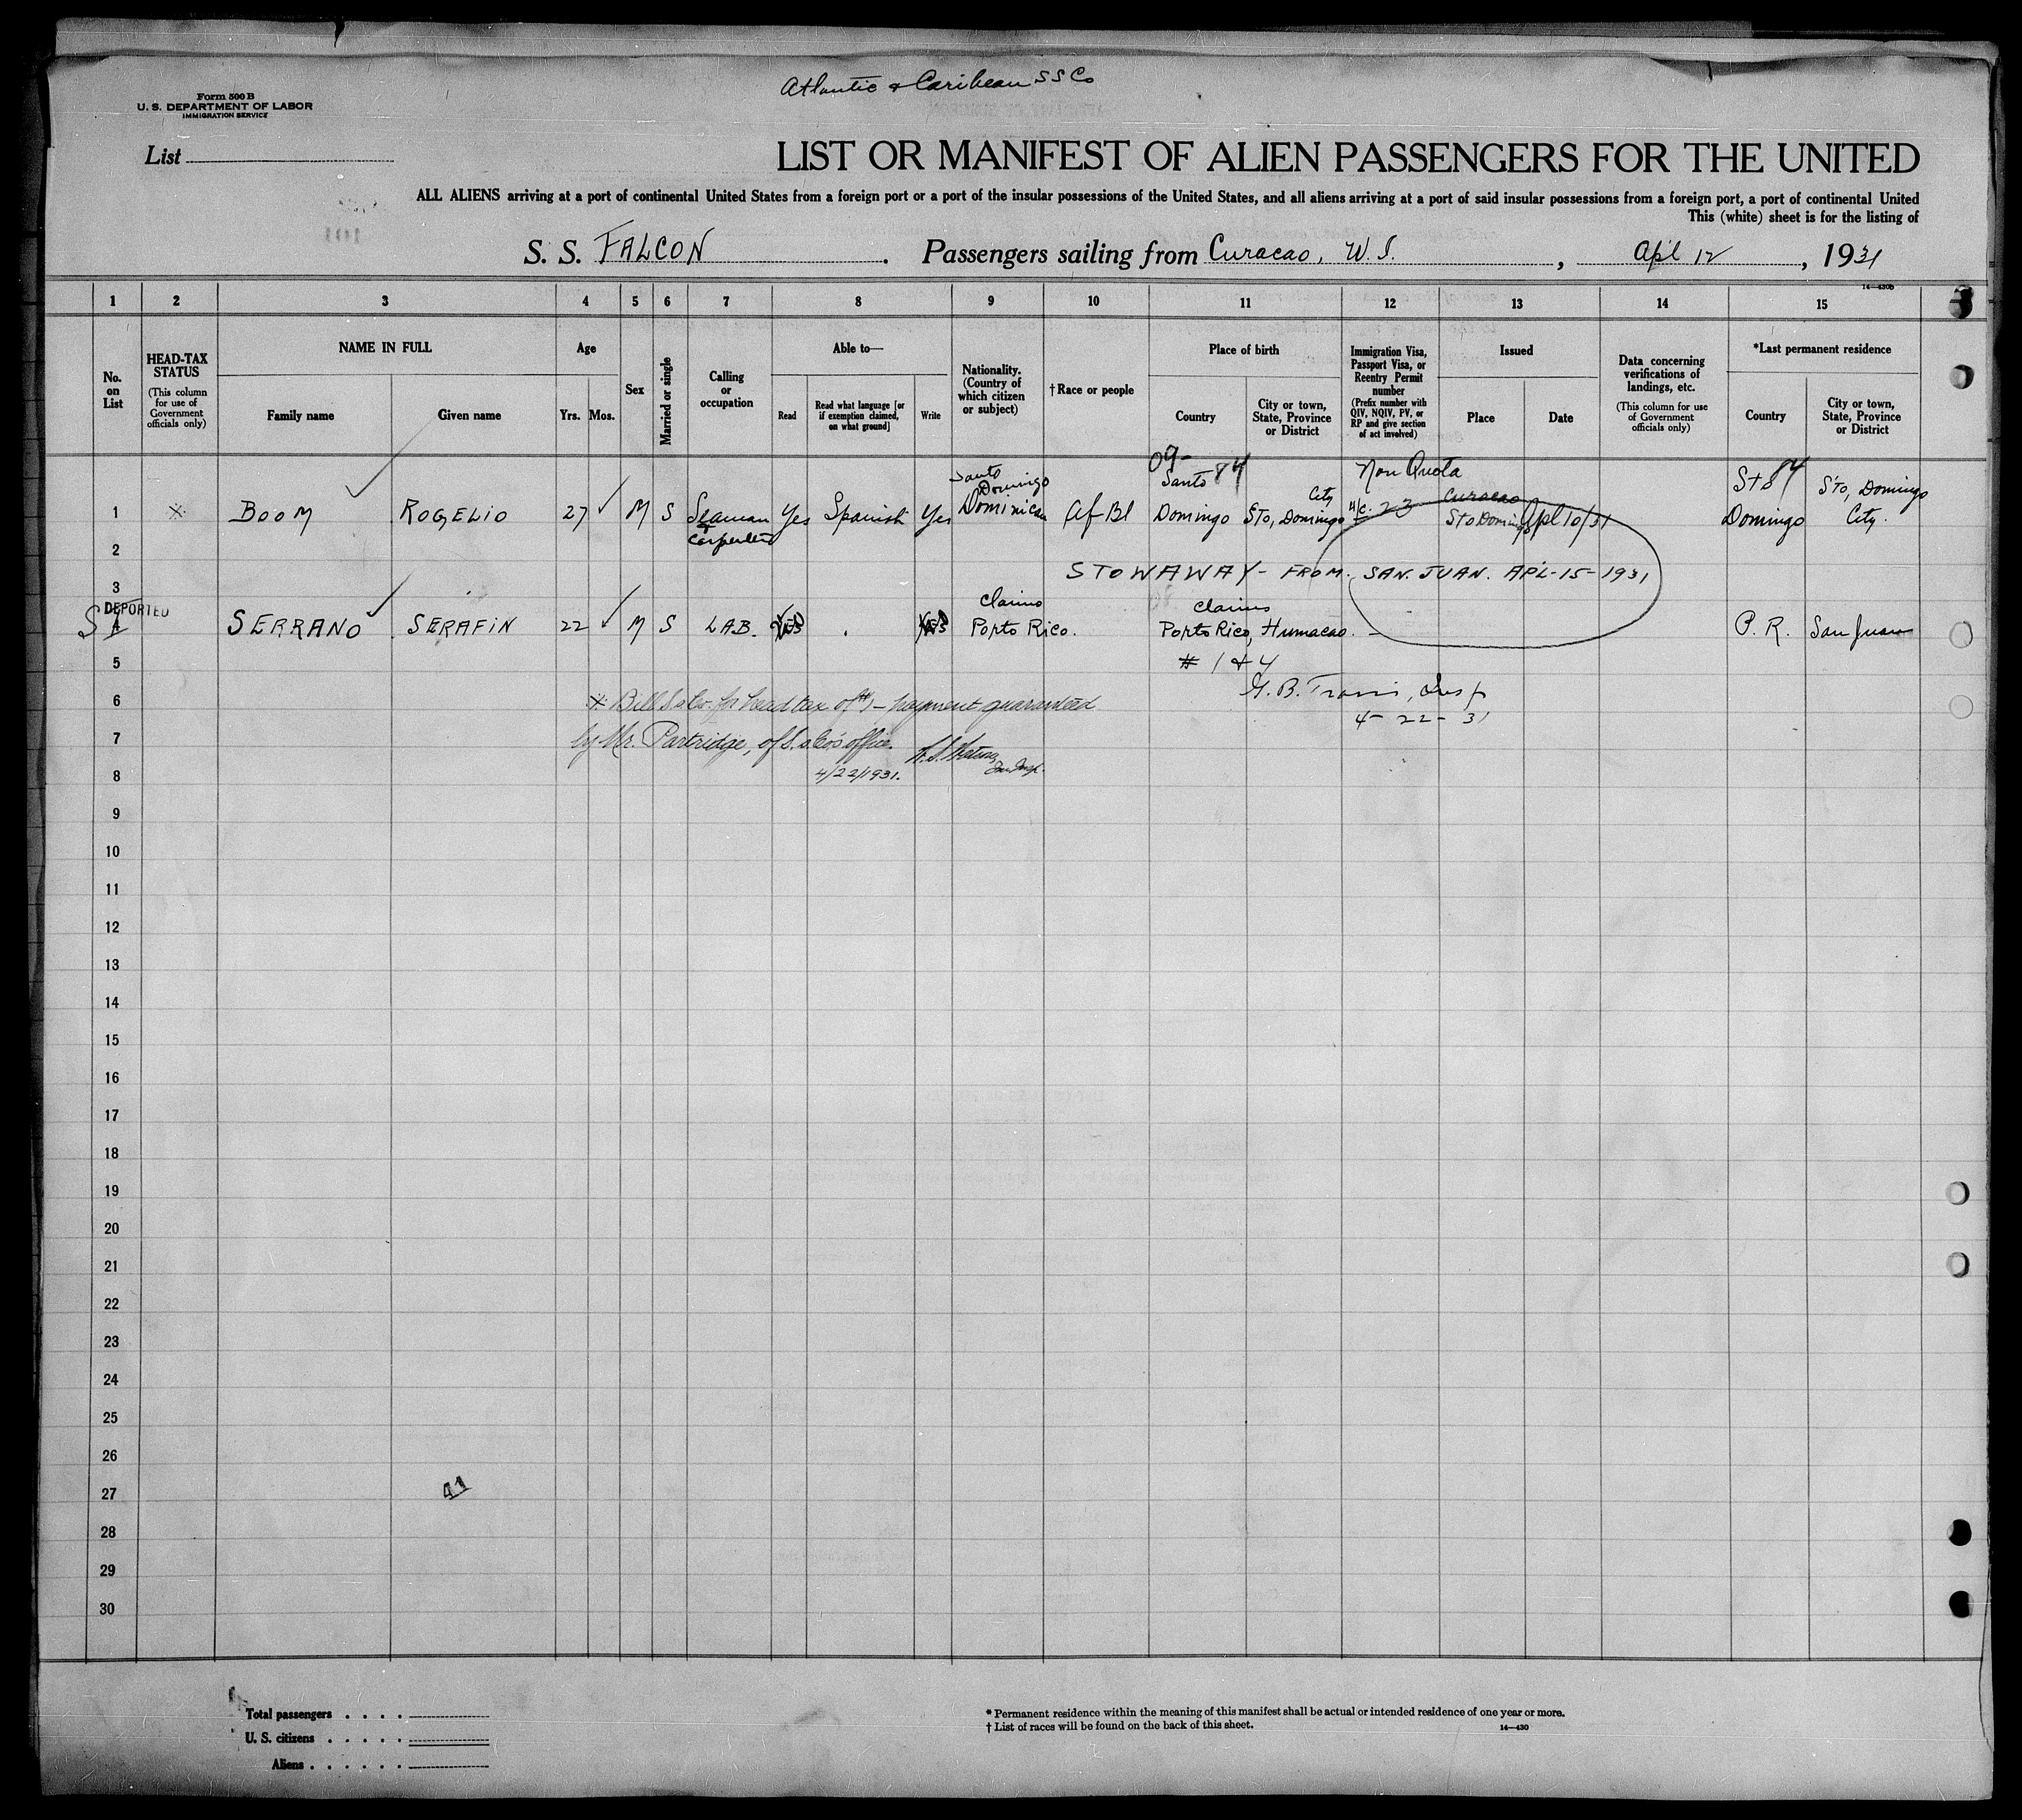 Atlantic & Caribean SS Co
Form 500 B
U. S. DEPARTMENT OF LABOR
IMMIGRATION SERVICE
List
LIST OR MANIFEST OF ALIEN PASSENGERS FOR THE UNITED
ALL ALIENS arriving at a port of continental United States from a foreign port or a port of the insular possessions of the United States, and all aliens arriving at a port of said insular possessions from a foreign port, a port of continental United
This (white) sheet is for the listing of
S. S. FALCON. Passengers sailing from Curacao, W. I., Apl 12, 1931
14—430b
1 2 3 4 5 6 7 8 9 10 11 12 13 14 15
No. on List
HEAD-TAX STATUS
(This column for use of Government officials only)
NAME IN FULL
Family name
Given name
Age
Yrs.
Mos.
Sex
Married or single
Calling or occupation
Able to—
Read
Read what language [or if exemption claimed, on what ground]
Write
Nationality. (Country of which citizen or subject)
†Race or people
Place of birth
Country
City or town, State, Province or District
Immigration Visa, Passport Visa, or Reentry Permit number
(Prefix number with QIV, NQIV, PV, or RP and give section of act involved)
Issued
Place
Date
Data concerning verifications of landings, etc.
(This column for use of Government officials only)
*Last permanent residence
Country
City or town, State, Province or District
09-
Santo 84
Santo Domingo
Non Quota
Curacao
Sto 84
1 BOOM ROGELIO 27 M S Seaman & Carpenter Yes Spanish Yes Dominican Af Bl Domingo Sto, Domingo City 4/c. 23 Sto Domingo Apl 10/31 Domingo Sto, Domingo City.
2
STOWAWAY - FROM. SAN. JUAN. APL-15-1931
3
DEPORTED
claims
claims
4 SERRANO SERAFIN 22 M S LAB. YES YES Porto Rico. Porto Rico, Humacao. - P. R. San Juan
5
# 1 & 4
6
G. B. Travis, Insp
4-22-31
Bill S.S.Co. for head tax of #1 - payment guaranteed
7
by Mr. Partridge, of S.S. Co's office.
4/22/1931.
8
9
10
11
12
13
14
15
16
17
18
19
20
21
22
23
24
25
26
27
41
28
29
30
Total passengers
U. S. citizens
Aliens
* Permanent residence within the meaning of this manifest shall be actual or intended residence of one year or more.
† List of races will be found on the back of this sheet.
14—430